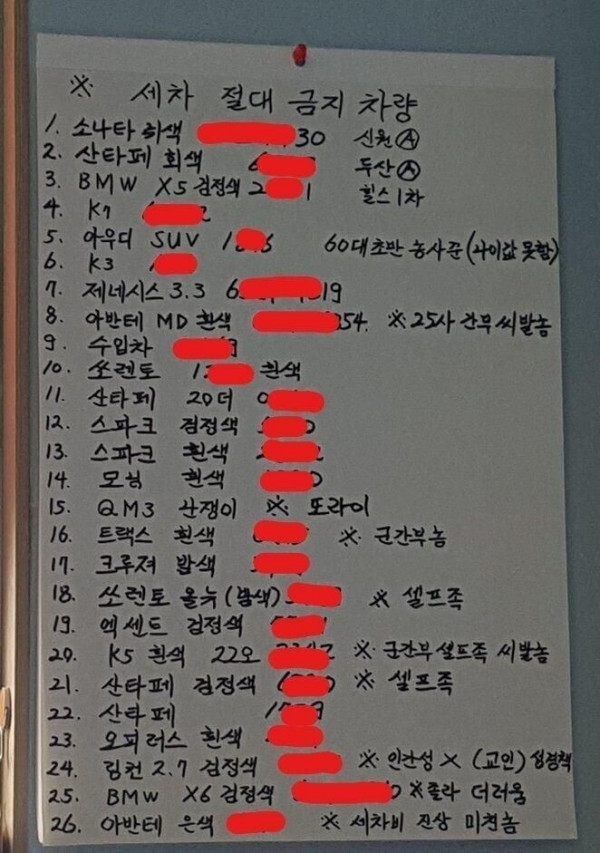 ※ 세차 절대 금지 차량
1. 소나타 회색 30 신원 Ⓐ
2. 산타페 회색 6 두산 Ⓐ
3. BMW X5 검정색 2 1 힐스 1차
4. K7 2
5. 아우디 SUV 1 6 60대초반 농사꾼 (나이값 못함)
6. K3 1
7. 제네시스 3.3 6 19
8. 아반테 MD 흰색 354. ※ 25사 간부 씨발놈
9. 수입차
10. 쏘렌토 12 흰색
11. 산타페 20더 0
12. 스파크 검정색
13. 스파크 흰색 2
14. 모닝 흰색 0
15. QM3 난쟁이 ※ 또라이
16. 트랙스 흰색 ※ 군간부놈
17. 크루져 밤색
18. 쏘렌토 올뉴 (밤색) ※ 셀프족
19. 엑센트 검정색
20. K5 흰색 22오 ※ 군간부 셀프족 씨발놈
21. 산타페 검정색 ※ 셀프족
22. 산타페 1 9
23. 오피러스 흰색
24. 링컨 2.7 검정색 ※ 인간성 X (교인) 성경책
25. BMW X6 검정색 0 ※ 졸라 더러움
26. 아반테 은색 ※ 세차비 진상 미친놈